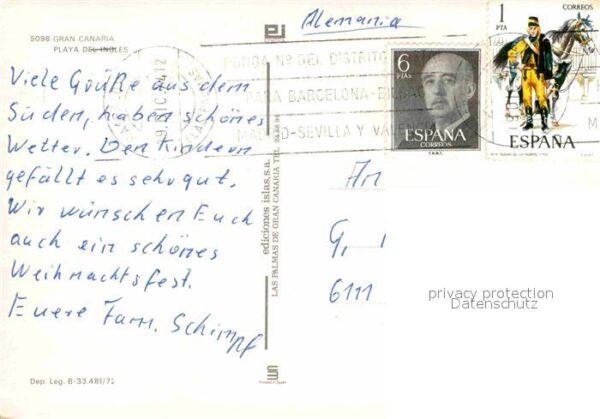 5096 GRAN CANARIA
PLAYA DEL INGLES
Viele Grüße aus dem
Süden, haben schönes
Wetter. Den Kindern
gefällt es sehr gut.
Wir wünschen Euch
auch ein schönes
Weihnachtsfest.
Euere Fam. Schimpf
Dep. Leg. B-33.481/72
ediciones islas, s.a.
LAS PALMAS DE GRAN CANARIA TEL.
Printed in Spain
Alemania
PONGA Nº DEL DISTRITO
PARA BARCELONA-BILBAO
MADRID-SEVILLA Y VALENCIA
6
PTAS
ESPAÑA
CORREOS
1
PTA
CORREOS
ESPAÑA
An
G.
6111
privacy protection
Datenschutz